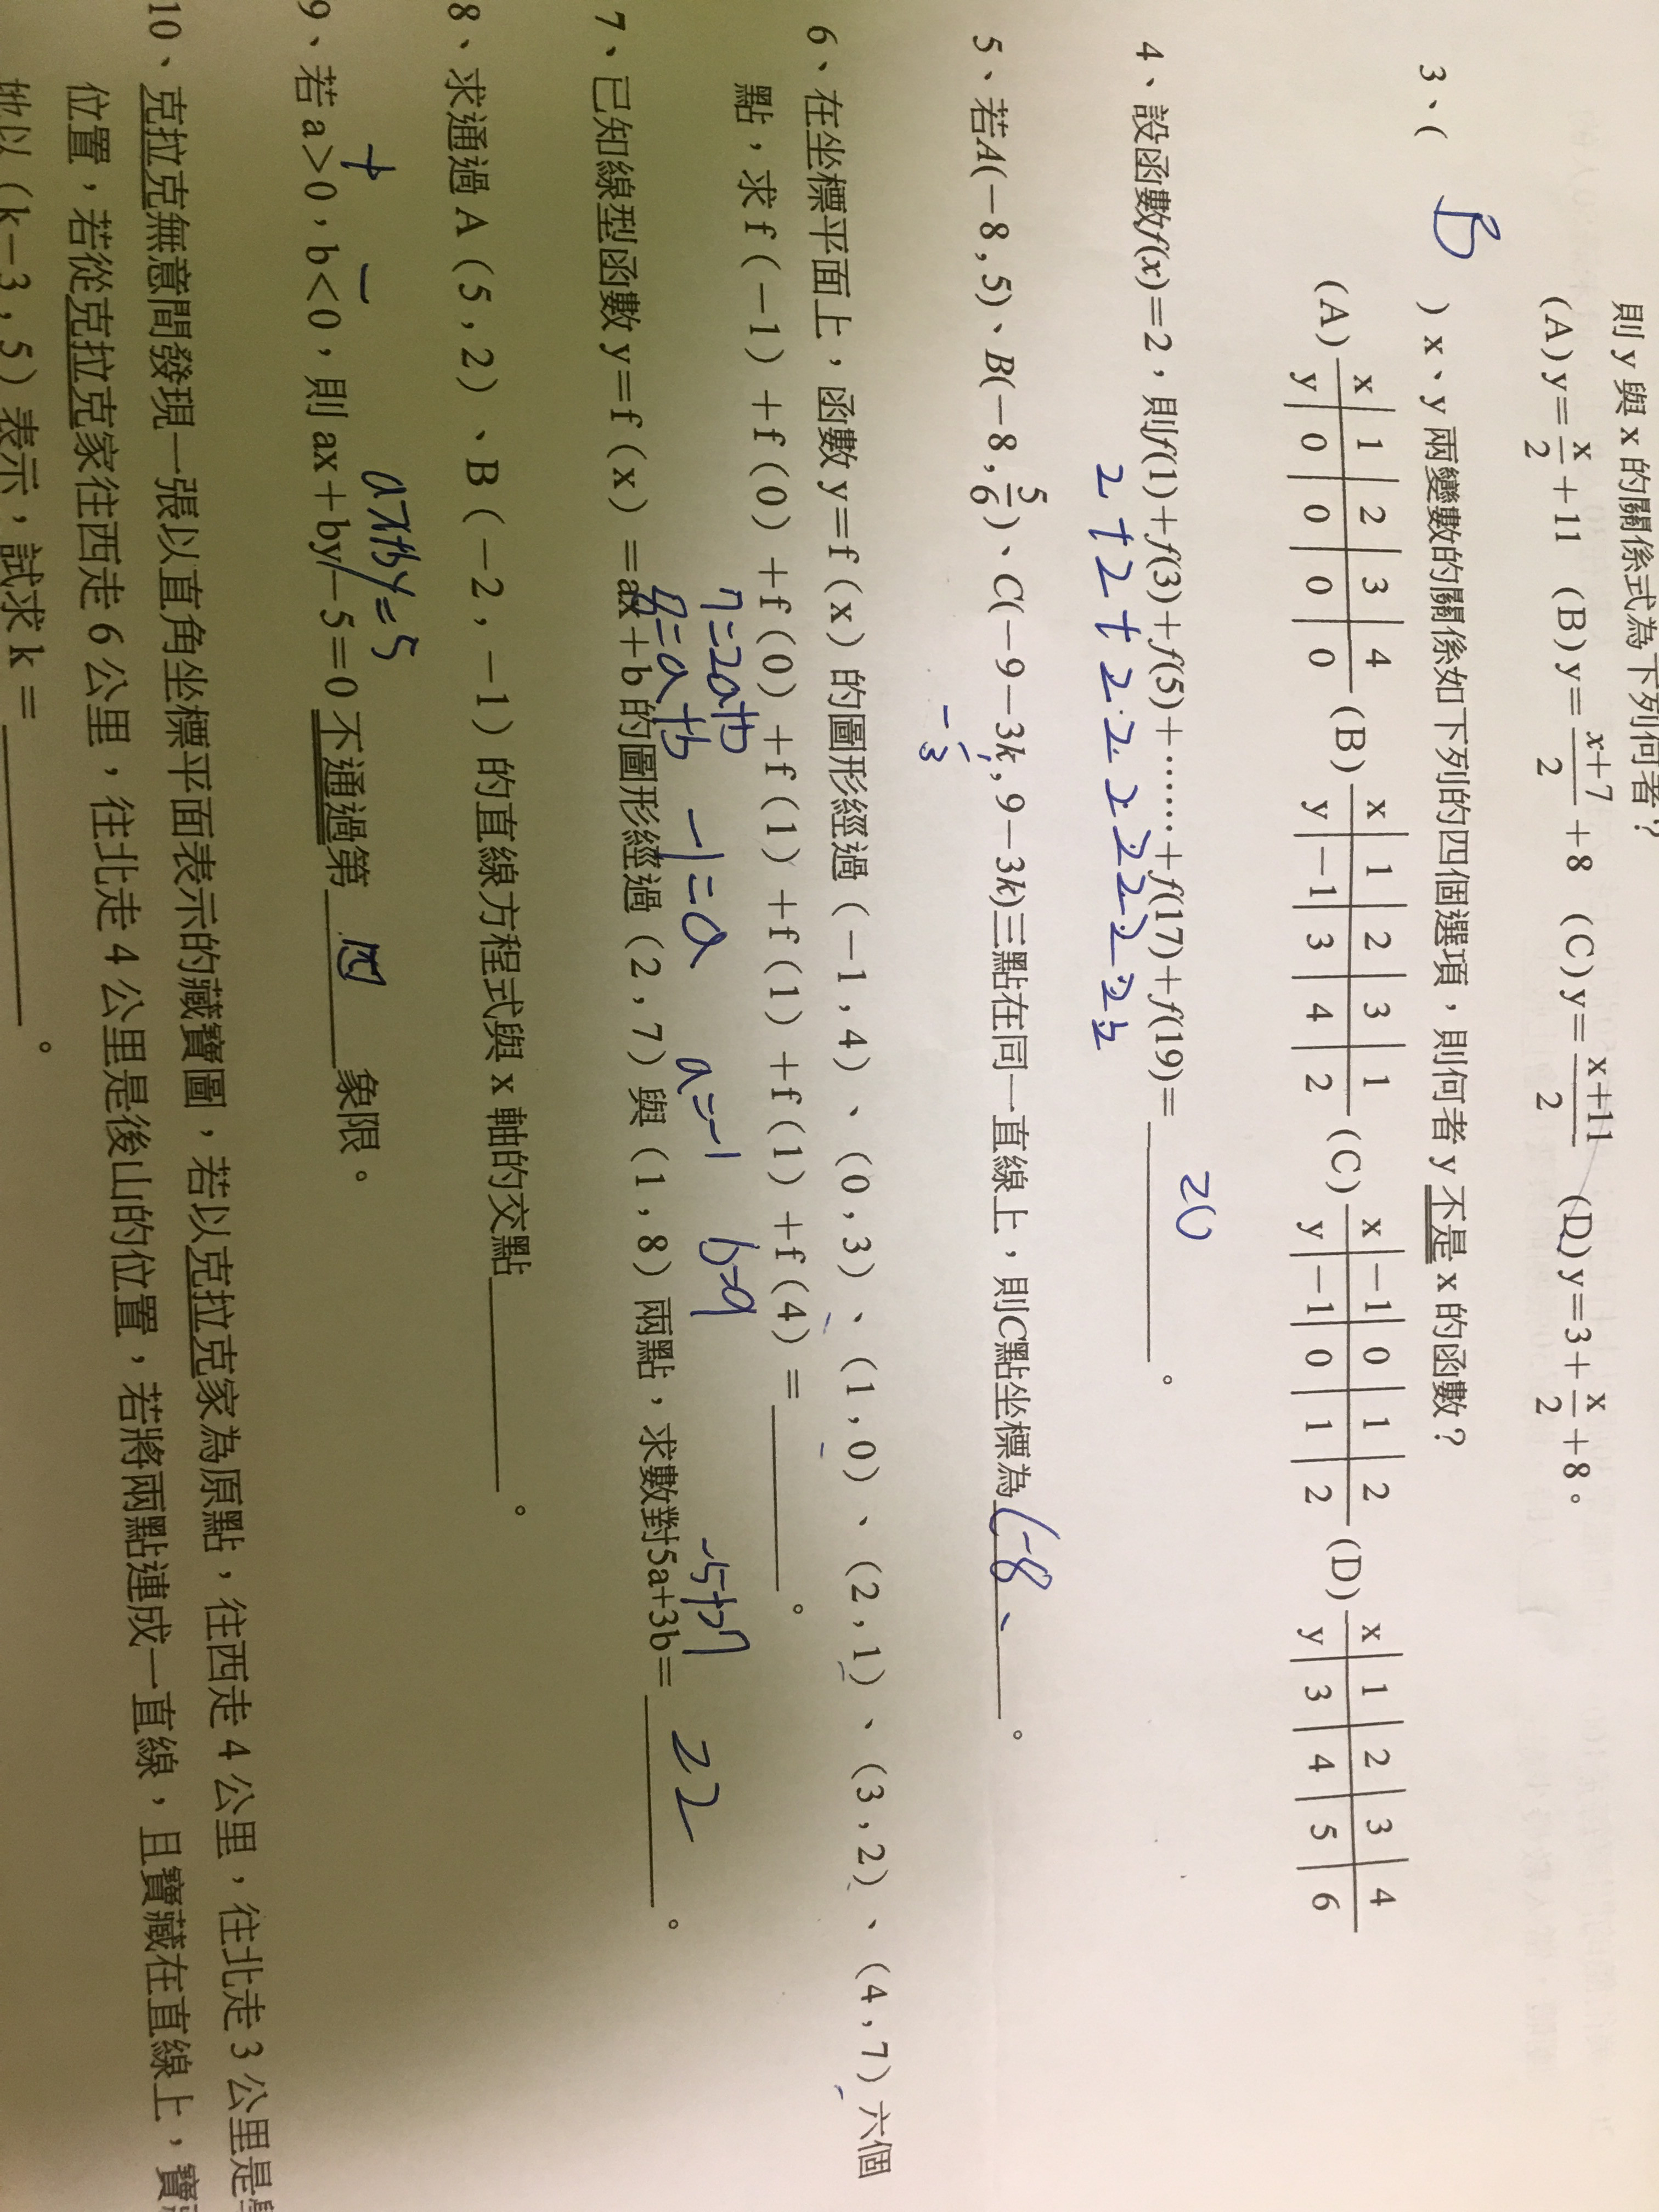 則 y 與 x 的關係式為下列何者？
(A) y＝x/2＋11 (B) y＝(x+7)/2＋8 (C) y＝(x+11)/2 (D) y＝3＋x/2＋8。
3、( B ) x、y 兩變數的關係如下列的四個選項，則何者 y 不是 x 的函數？
(A) x 1 2 3 4 (B) x 1 2 3 1 (C) x －1 0 1 2 (D) x 1 2 3 4
y 0 0 0 0 y －1 3 4 2 y －1 0 1 2 y 3 4 5 6
20
4、設函數f(x)＝2，則f(1)＋f(3)＋f(5)＋……＋f(17)＋f(19)＝______。
2+2+2.2.2.2.2.2.2.2
5、若A(－8 , 5)、B(－8 , 5/6)、C(－9－3k , 9－3k)三點在同一直線上，則C點坐標為(-8、。
6、在坐標平面上，函數 y＝f（x）的圖形經過（－1 , 4）、（0 , 3）、（1 , 0）、（2 , 1）、（3 , 2）、（4 , 7）六個
點，求 f（－1）＋f（0）＋f（0）＋f（1）＋f（1）＋f（1）＋f（4）＝______。
7=2a+b -1=a a=-1 b=9 -5+27 22
8=a+b
7、已知線型函數 y＝f（x）＝ax＋b 的圖形經過（2 , 7）與（1 , 8）兩點，求數對5a+3b＝______。
8、求通過 A（5 , 2）、B（－2 , －1）的直線方程式與 x 軸的交點______。
+ - ax+by=5
9、若 a＞0，b＜0，則 ax＋by－5＝0 不通過第 四 象限。
10、克拉克無意間發現一張以直角坐標平面表示的藏寶圖，若以克拉克家為原點，往西走 4 公里，往北走 3 公里是
位置，若從克拉克家往西走 6 公里，往北走 4 公里是後山的位置，若將兩點連成一直線，且寶藏在直線上，寶
地以（k－3 , 5）表示，試求 k＝______。